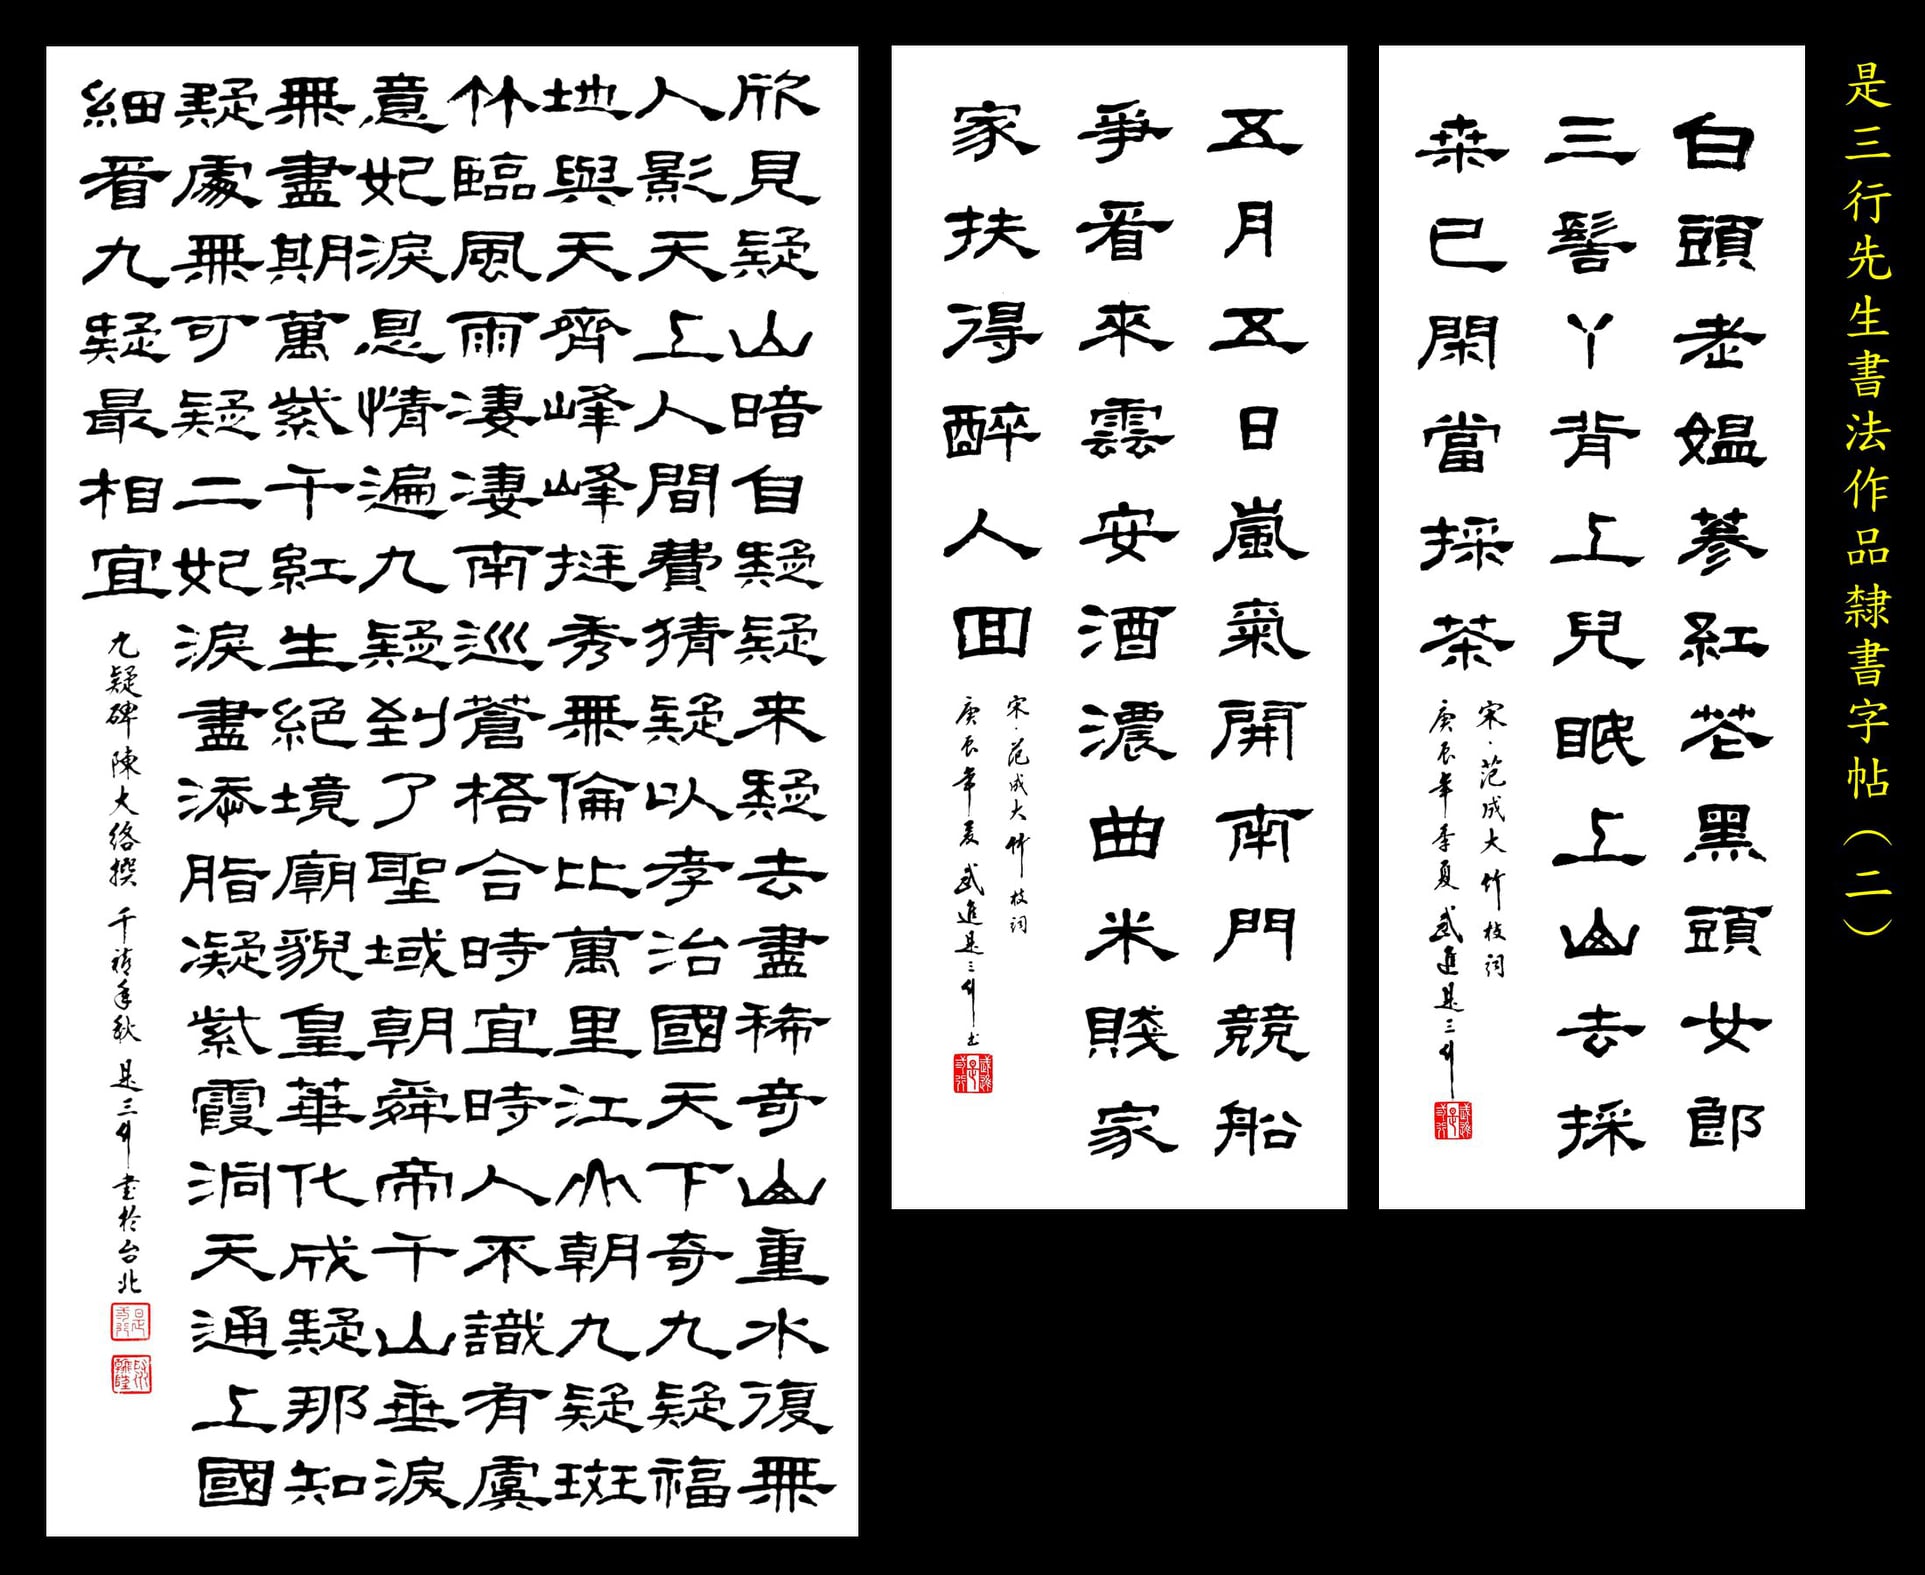 是三行先生書法作品隸書字帖（二）
白頭老媼篸紅花黑頭女郎
三髻丫背上兒眠上山去採
桒已閑當採茶
宋·范成大竹枝詞
庚辰年季夏武進是三行
五月五日嵐氣開南門競船
爭看來雲安酒濃曲米賤家
家扶得醉人回
宋·范成大竹枝詞
庚辰年夏武進是三行書
欣見疑山暗自疑疑来疑去盡稀奇山重水復無
人影天上人間費猜疑以孝治國天下奇九疑福
地與天齊峰峰挺秀無倫比萬里江山朝九疑斑
竹臨風雨凄凄南巡蒼梧合時宜時人不識有虞
意妃淚恩情遍九疑到了聖域朝舜帝千山垂淚
無盡期萬紫千紅生絕境廟貌皇華化成疑那知
疑處無可疑二妃淚盡添脂凝紫霞洞天通上國
細看九疑最相宜
九疑碑陳大絡撰 千禧年秋 是三行書於台北